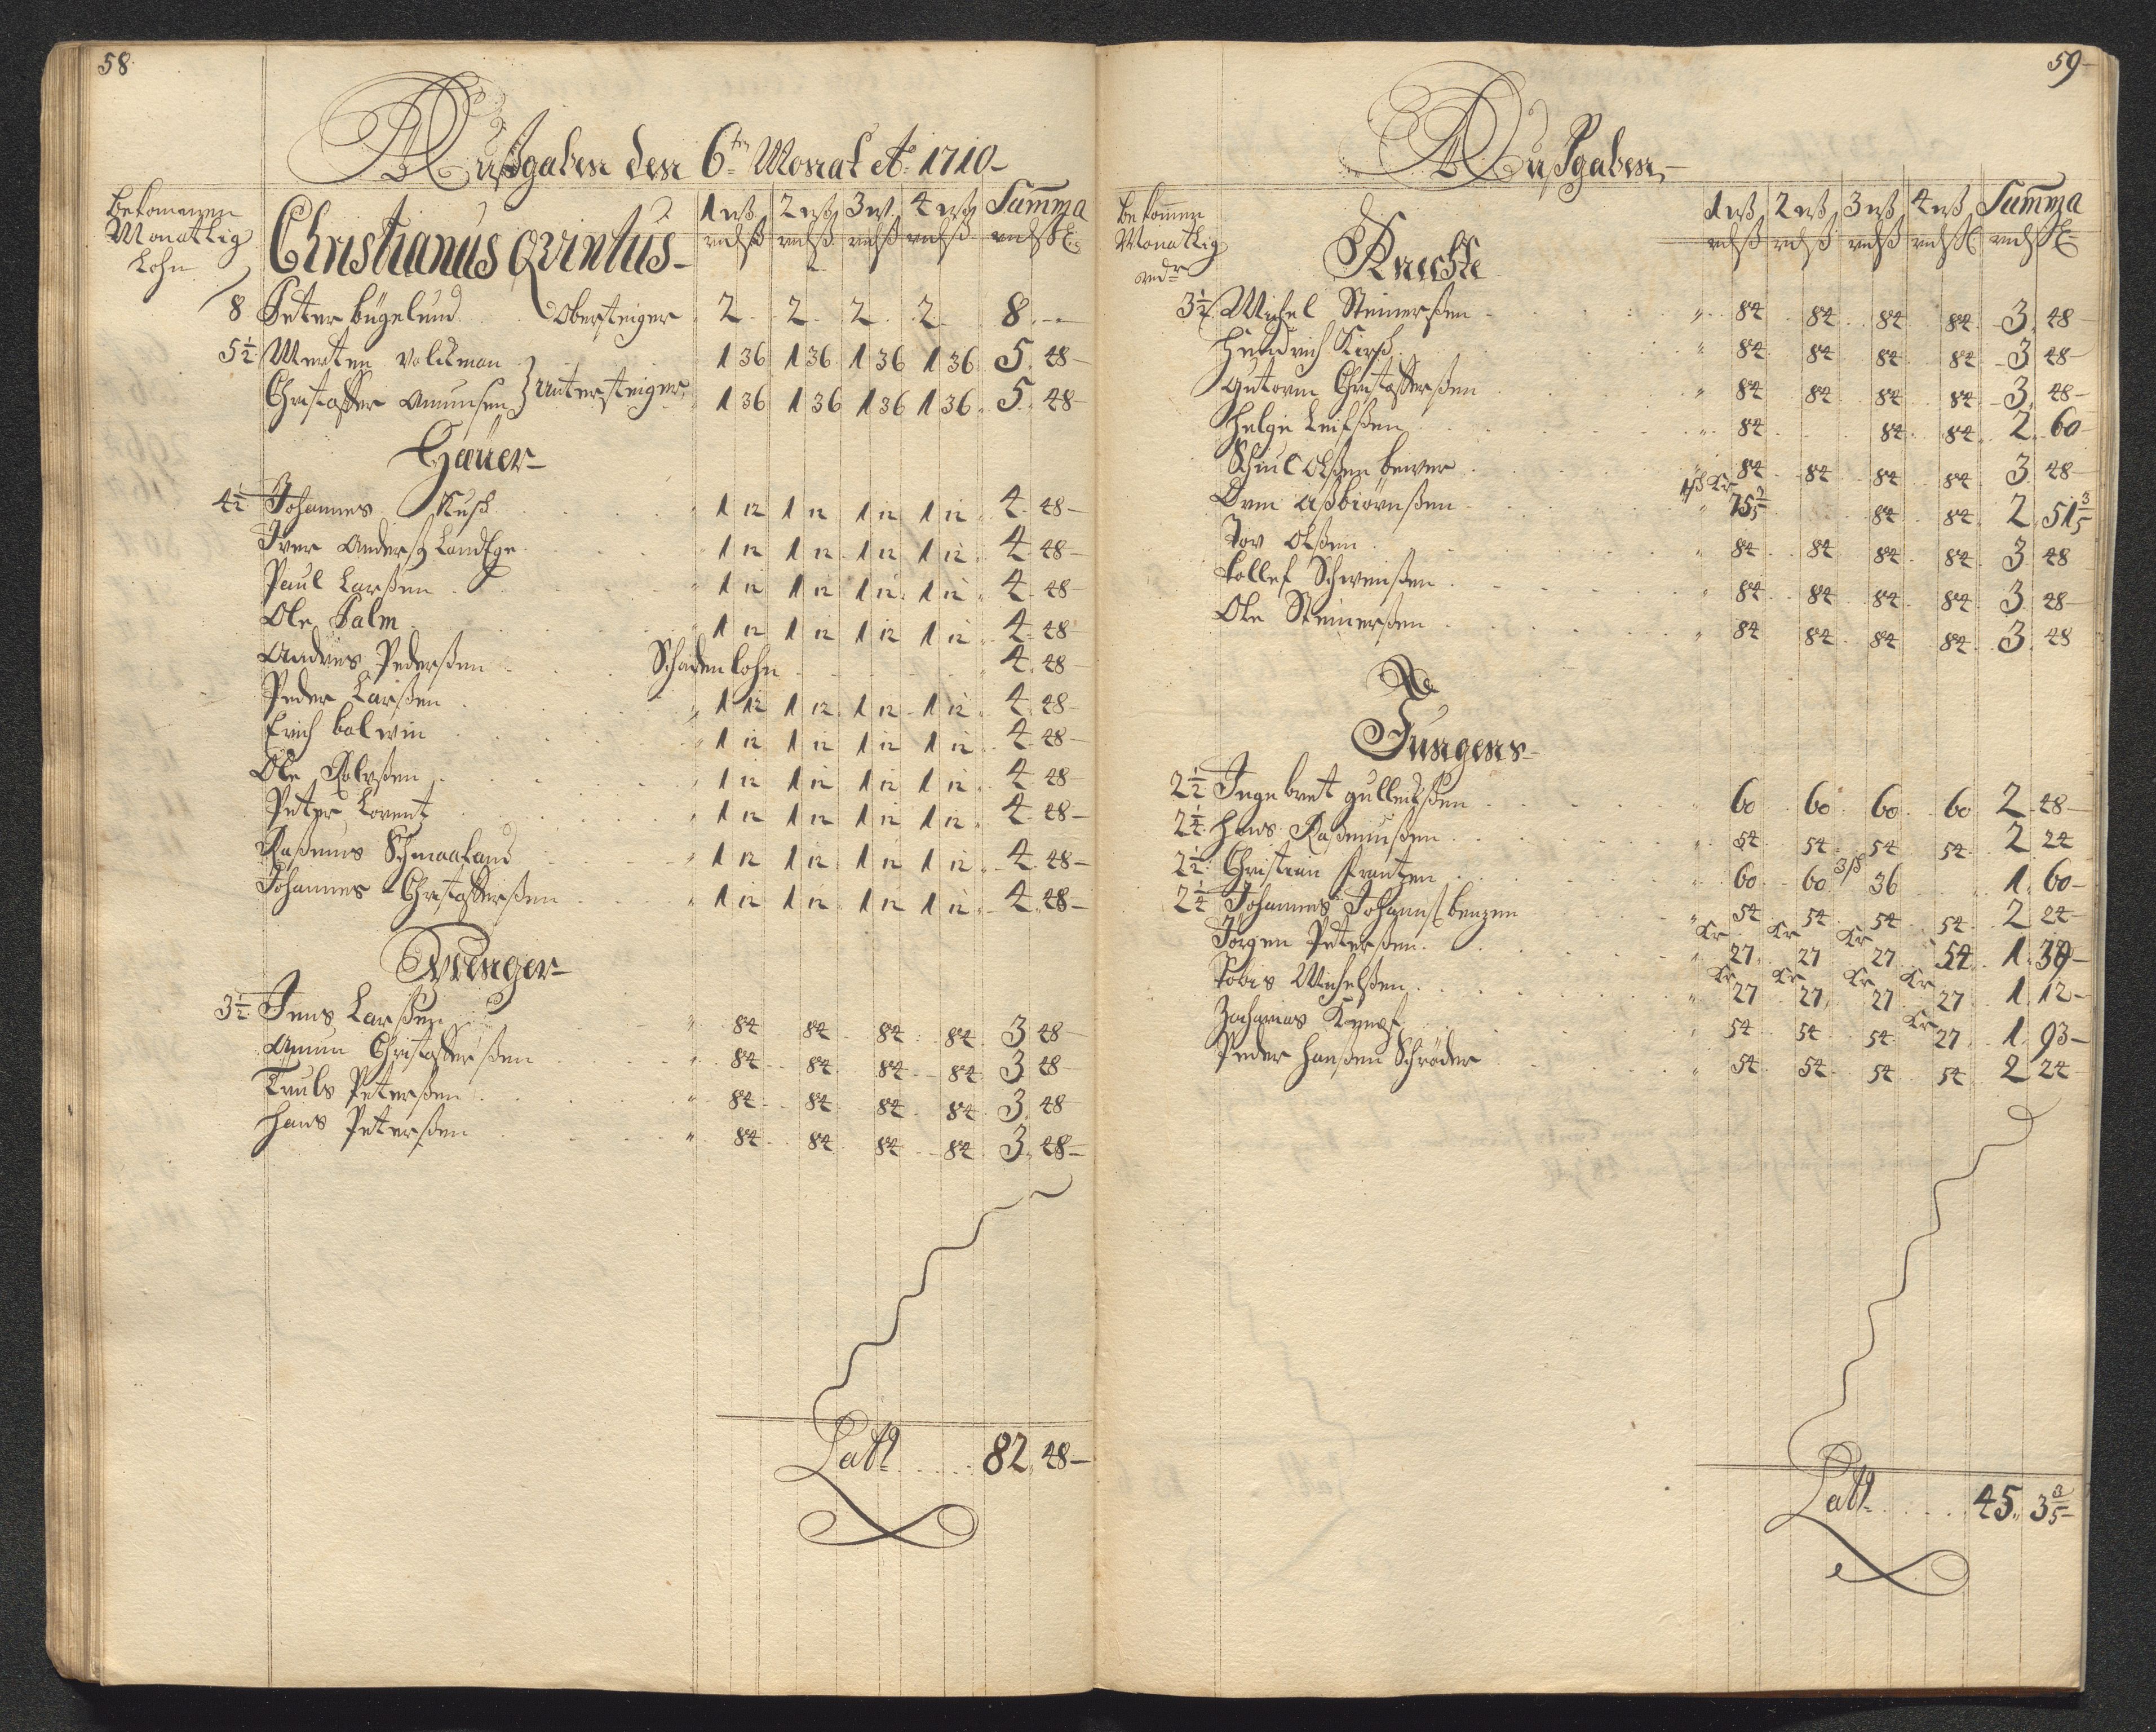 58
Außgaben den 6ten Monat Ao 1710
Bekommen
Monatlig
Lohn
1 wß 2 wß 3 w. 4 wß Summa
rd ß rd ß rd ß rd ß rd ß
Christianus Qvintus
8 Peter bügelund Obersteiger 2 2 2 2 8
5½ Merten Volckman 1 36 1 36 1 36 1 36 5 48
Christoffer Amunsen } Untersteiger 1 36 1 36 1 36 1 36 5 48
Häuer
4½ Johannes Kusch 1 12 1 12 1 12 1 12 4 48
Iver Anderß Landtge 1 12 1 12 1 12 1 12 4 48
Paul Larßen 1 12 1 12 1 12 1 12 4 48
Ole Palm 1 12 1 12 1 12 1 12 4 48
Andres Pederßen Schadenlohn 4 48
Peder Larßen 1 12 1 12 1 12 1 12 4 48
Erich bolwin 1 12 1 12 1 12 1 12 4 48
Ole Rolvßen 1 12 1 12 1 12 1 12 4 48
Peter Lorentz 1 12 1 12 1 12 1 12 4 48
Raßmus Schmaaland 1 12 1 12 1 12 1 12 4 48
Johannes Christofferßen 1 12 1 12 1 12 1 12 4 48
Drenger
3½ Jens Larßen 84 84 84 84 3 48
Amun Christofferßen 84 84 84 84 3 48
Truls Peterßen 84 84 84 84 3 48
Hans Peterßen 84 84 84 84 3 48
Latt 82 48
59
Außgaben
Bekommen
Monatlig
rdr
1 wß 2 wß 3 wß 4 wß Summa
rd ß rd ß rd ß rd ß rd ß
Knechte
3½ Michel Steinerßen 84 84 84 84 3 48
Hendrich Kirß 84 84 84 84 3 48
Gutorm Christofferßen 84 84 84 84 3 48
Helge Leifßen 84 84 84 2 60
Schiul Olßen bewer 84 84 84 84 3 48
Orm Aßbiörnßen 75 3/5 84 84 2 51 3/5
Tov Olßen 84 84 84 84 3 48
Tollef Schweinßen 84 84 84 84 3 48
Ole Steinerßen 84 84 84 84 3 48
Jungens
2½ Ingebret gulleickßen 60 60 60 60 2 48
2¼ Hans Raßmußen 54 54 54 54 2 24
2½ Christian Frantzen 60 60 3ß 36 1 60
2¼ Johannes Johanß benzen 54 54 54 54 2 24
Jörgen Peterßen Kr 27 Kr 27 Kr 27 54 1 39
Tobis Michelßen Kr 27 Kr 27 Kr 27 Kr 27 1 12
Zacharias Kempf 54 54 54 Kr 27 1 93
Peder Hanßen Schröder 54 54 54 54 2 24
Latt 45 3 3/5